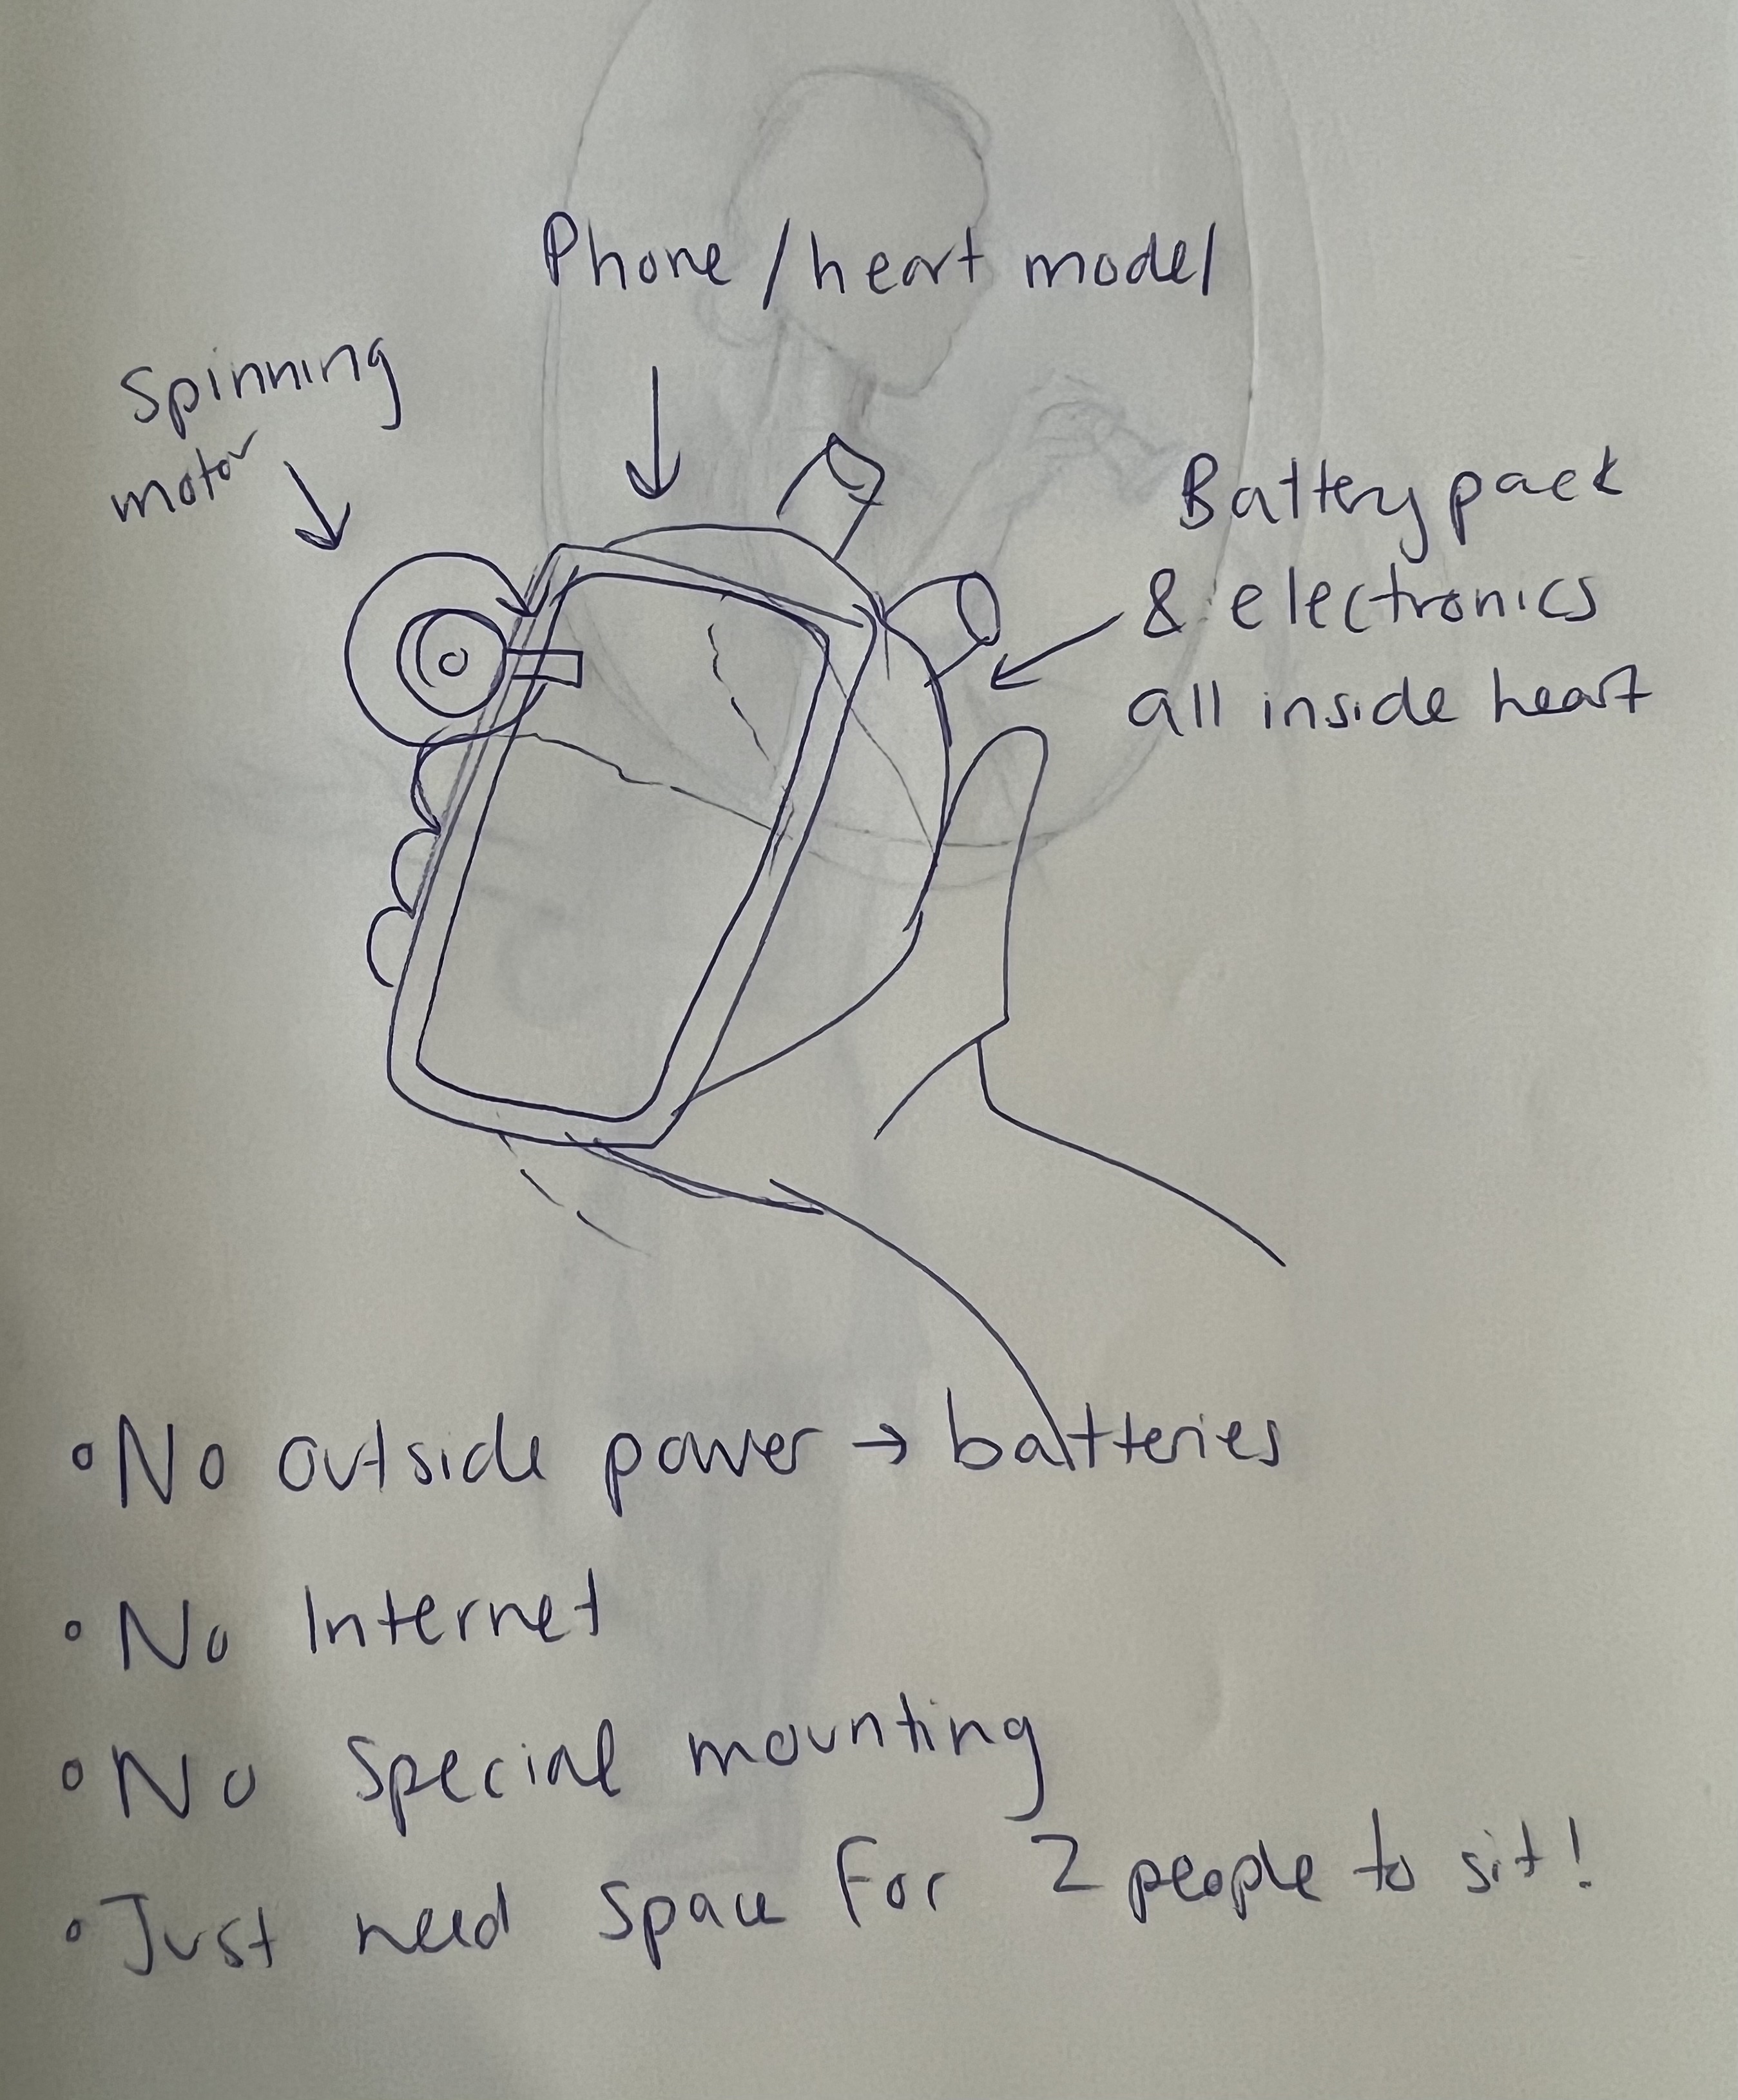 Phone / heart model
Spinning
motor
Battery pack
& electronics
all inside heart
• No outside power → batteries
• No Internet
• No special mounting
• Just need space for 2 people to sit!